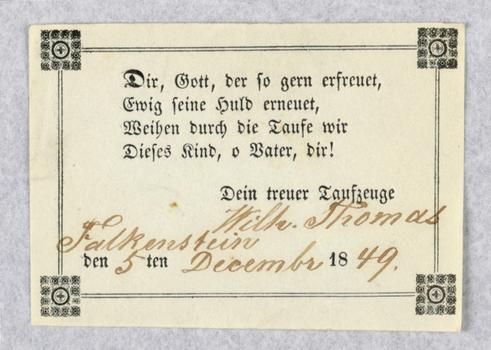 Dir, Gott, der so gern erfreuet,
Ewig seine Huld erneuet,
Weihen durch die Taufe wir
Dieses Kind, o Vater, dir!
Dein treuer Taufzeuge
Wilh. Thomas
Falkenstein
den 5 ten Decembr 1849.